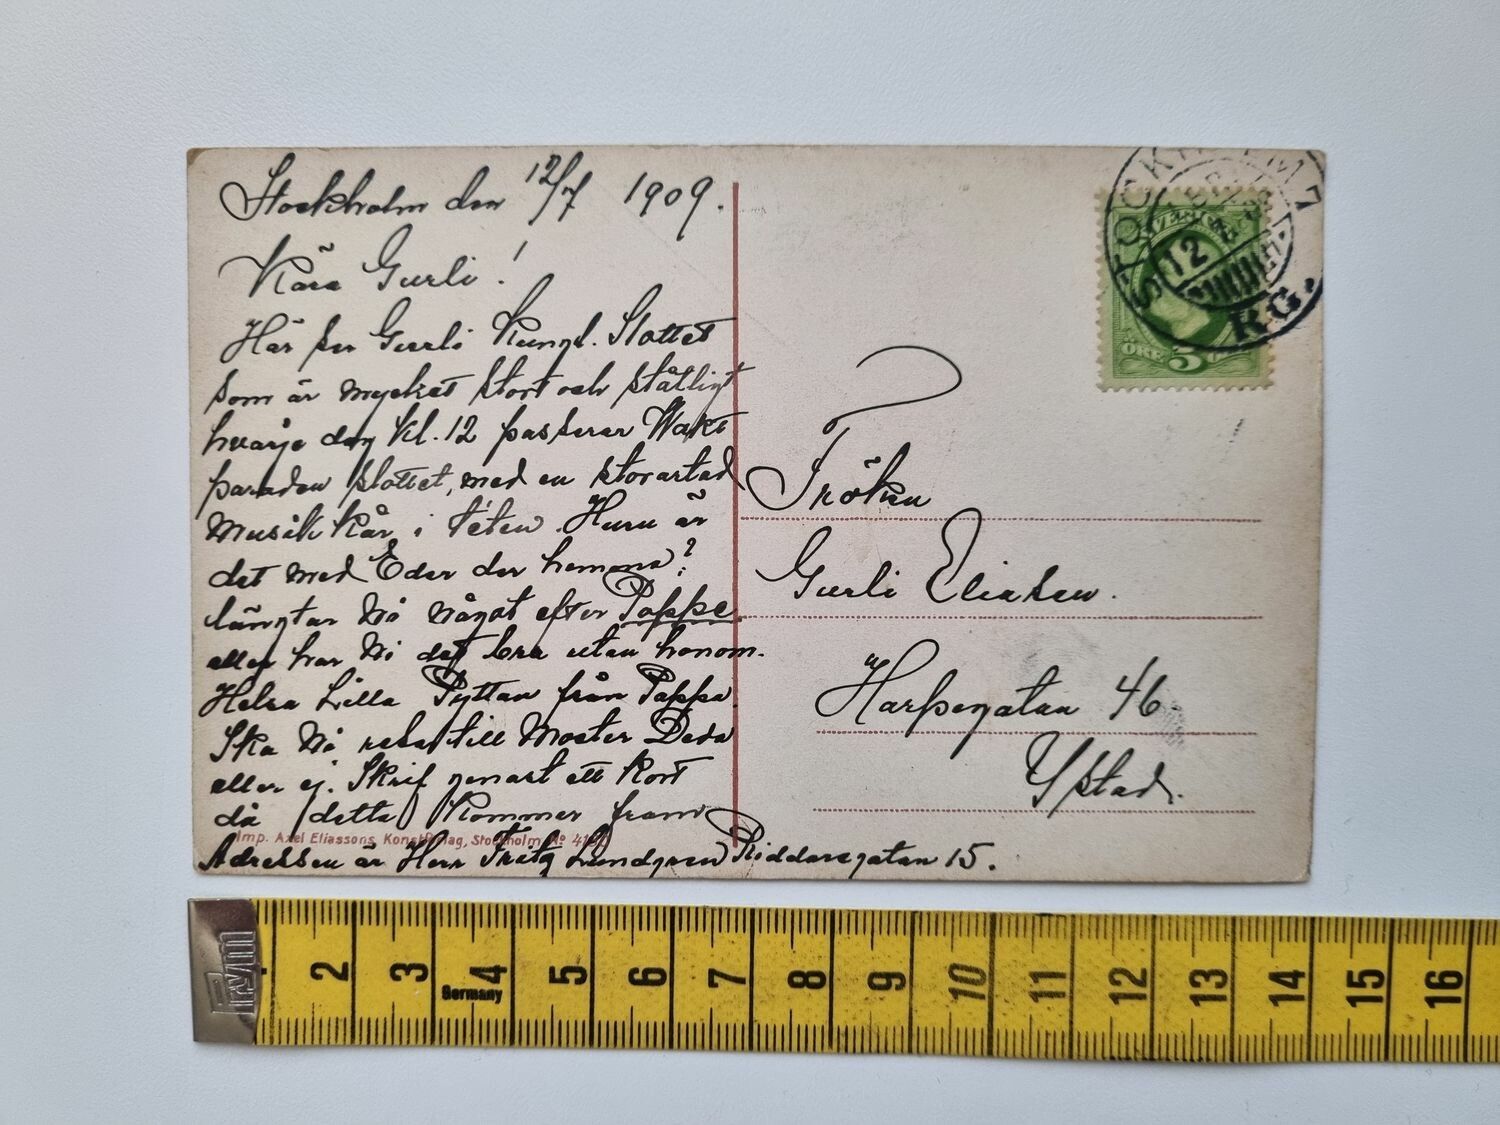 Stockholm den 12/7 1909.
Kära Gurli!
Här ser Gurli Kungl. Slottet
som är mycket stort och ståtligt
hvarje dag kl. 12 passerar Wakt
paraden slottet, med en storartad
Musik kår i téten. Huru är
det med Eder der hemma?
längtar Ni något efter Pappa
eller har Ni det bra utan honom.
Helsa Lilla Pyttan från Pappa.
Ska Ni resa till Moster Deda
eller ej. Skrif genast ett kort
då detta kommer fram
Imp. Axel Eliassons Konstförlag, Stockholm No
Adressen är Herr Fritz Lundgren Riddaregatan 15.
STOCKHOLM 7
12 7
RG.
SVERIGE
ÖRE 5
Fröken
Gurli Eliasen.
Harpegatan 46.
Ystad.
Prym
2 3 4 5 6 7 8 9 10 11 12 13 14 15 16
Germany